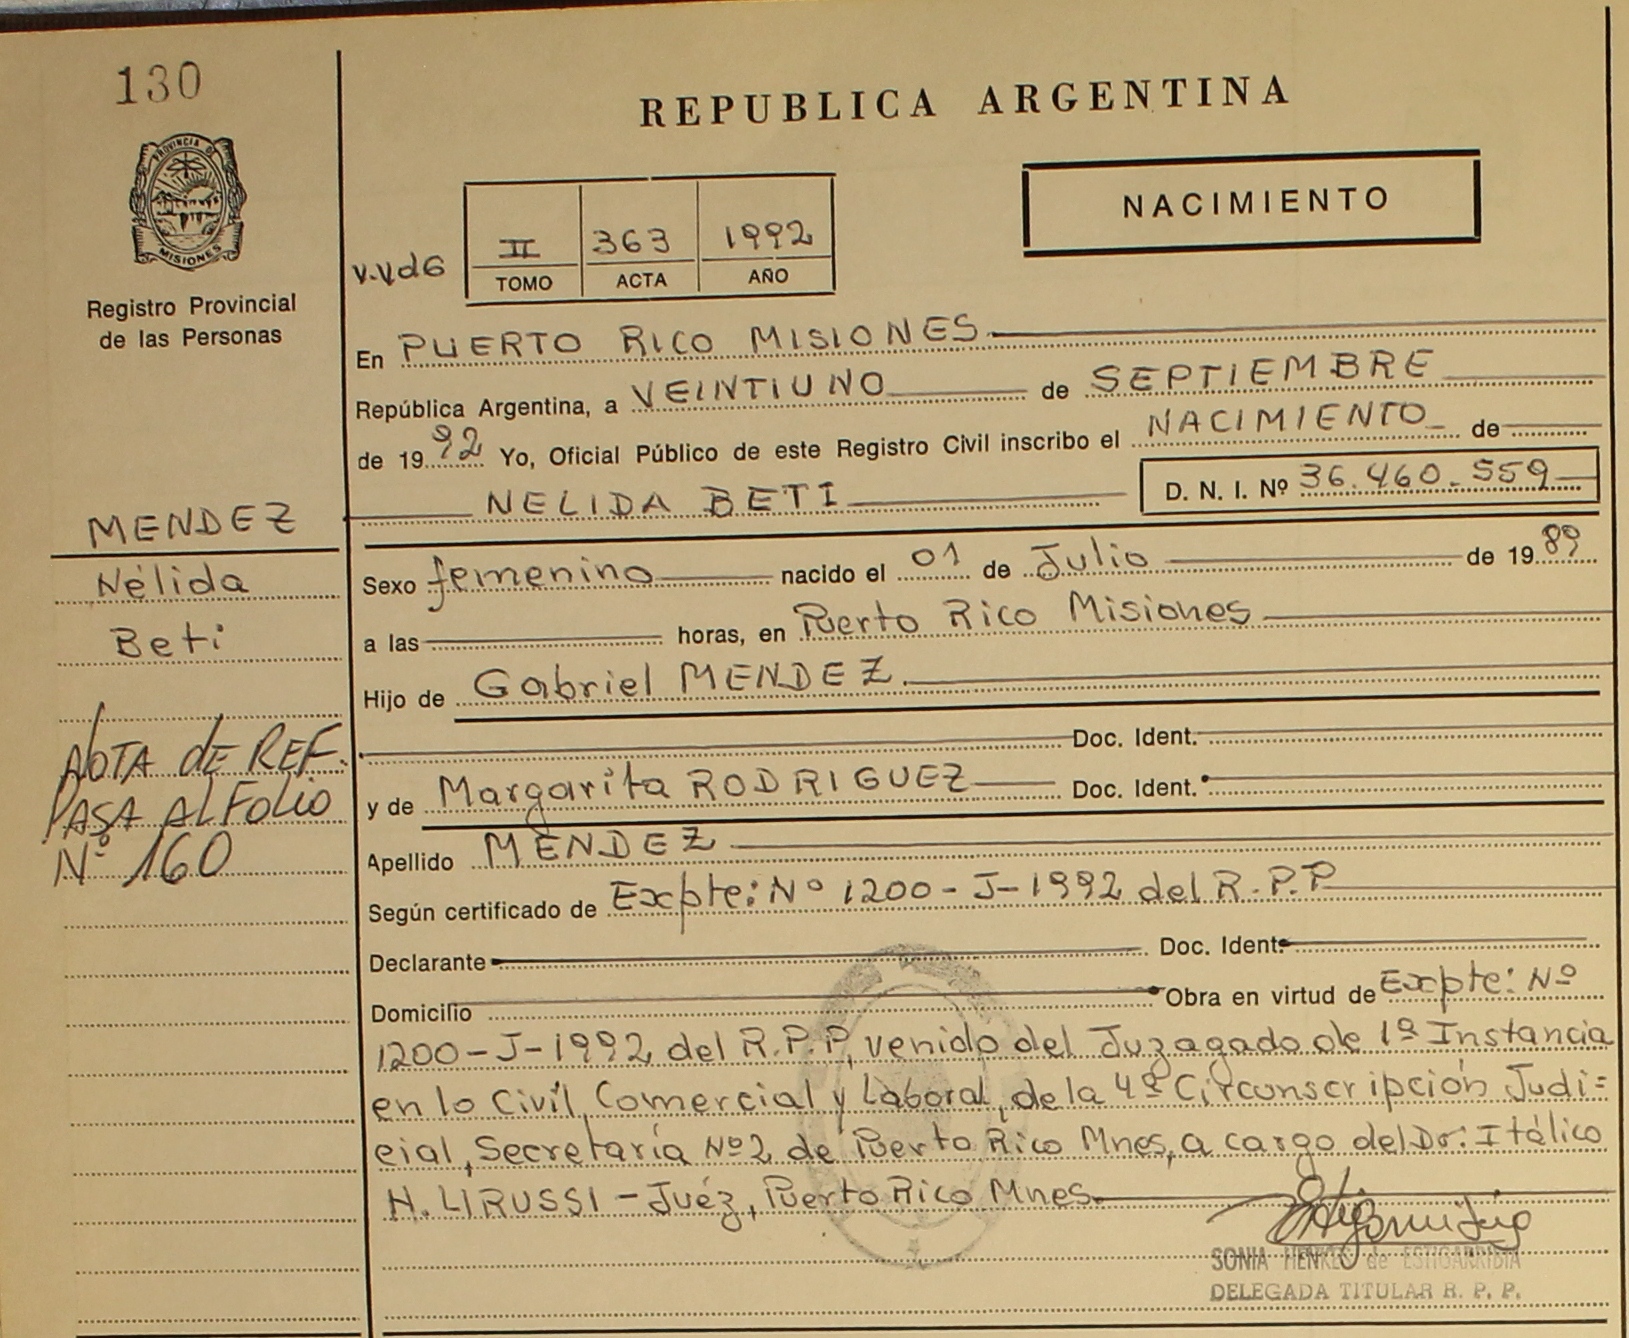 130
REPUBLICA ARGENTINA
PROVINCIA DE
MISIONES
Registro Provincial
de las Personas
NACIMIENTO
v.vdG
II 363 1992
TOMO ACTA AÑO
En PUERTO RICO MISIONES
República Argentina, a VEINTIUNO de SEPTIEMBRE
de 1992 Yo, Oficial Público de este Registro Civil inscribo el NACIMIENTO de
NELIDA BETI D. N. I. Nº 36.460.559
MENDEZ
Nélida
Beti
NOTA de REF.
PASA AL FOLIO
Nº 160
Sexo femenino nacido el 01 de Julio de 1989
a las horas, en Puerto Rico Misiones
Hijo de Gabriel MENDEZ
Doc. Ident.
y de Margarita RODRIGUEZ Doc. Ident.
Apellido MENDEZ
Según certificado de Expte: Nº 1200-J-1992 del R.P.P
Declarante Doc. Ident.
Domicilio Obra en virtud de Expte: Nº
1200-J-1992 del R.P.P, venido del Juzagado de 1ª Instancia
en lo Civil, Comercial y Laboral, de la 4ª Circunscripción Judi=
cial, Secretaría Nº2 de Puerto Rico Mnes, a cargo del Dr: Itálico
H. LIRUSSI - Juéz, Puerto Rico Mnes.
SONIA de ESTIGARRIBIA
DELEGADA TITULAR R. P. P.